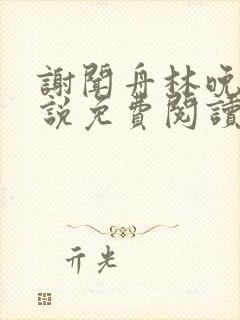 謝聞舟林晚
說免費閱讀
亓光